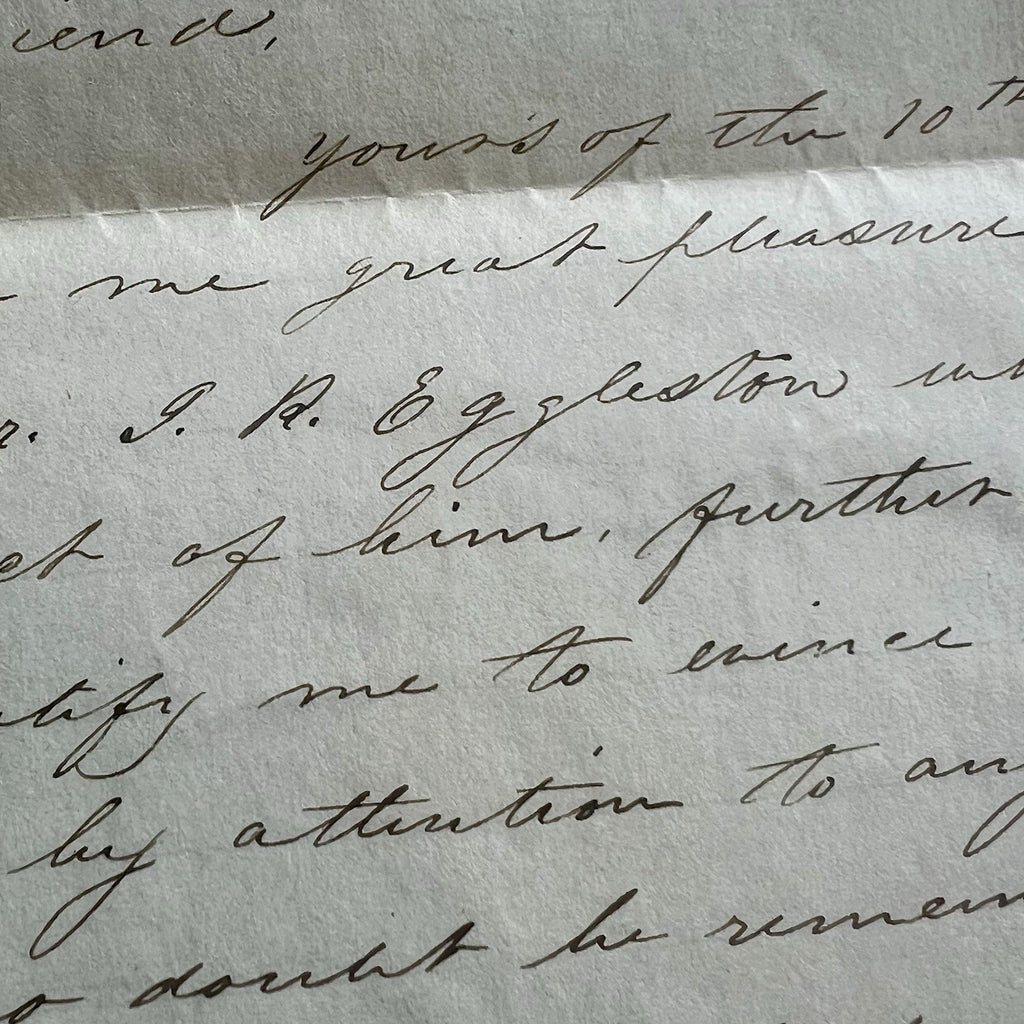 iend,
yours of the 10th
me great pleasure
r. I. R. Eggleston wh
ct of him, further
tify me to evince
by attention to any
o doubt be remem